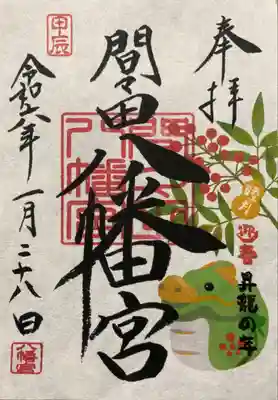 奉拝
迎春
昇龍の年
間々田八幡宮
甲辰
令和六年一月二十八日